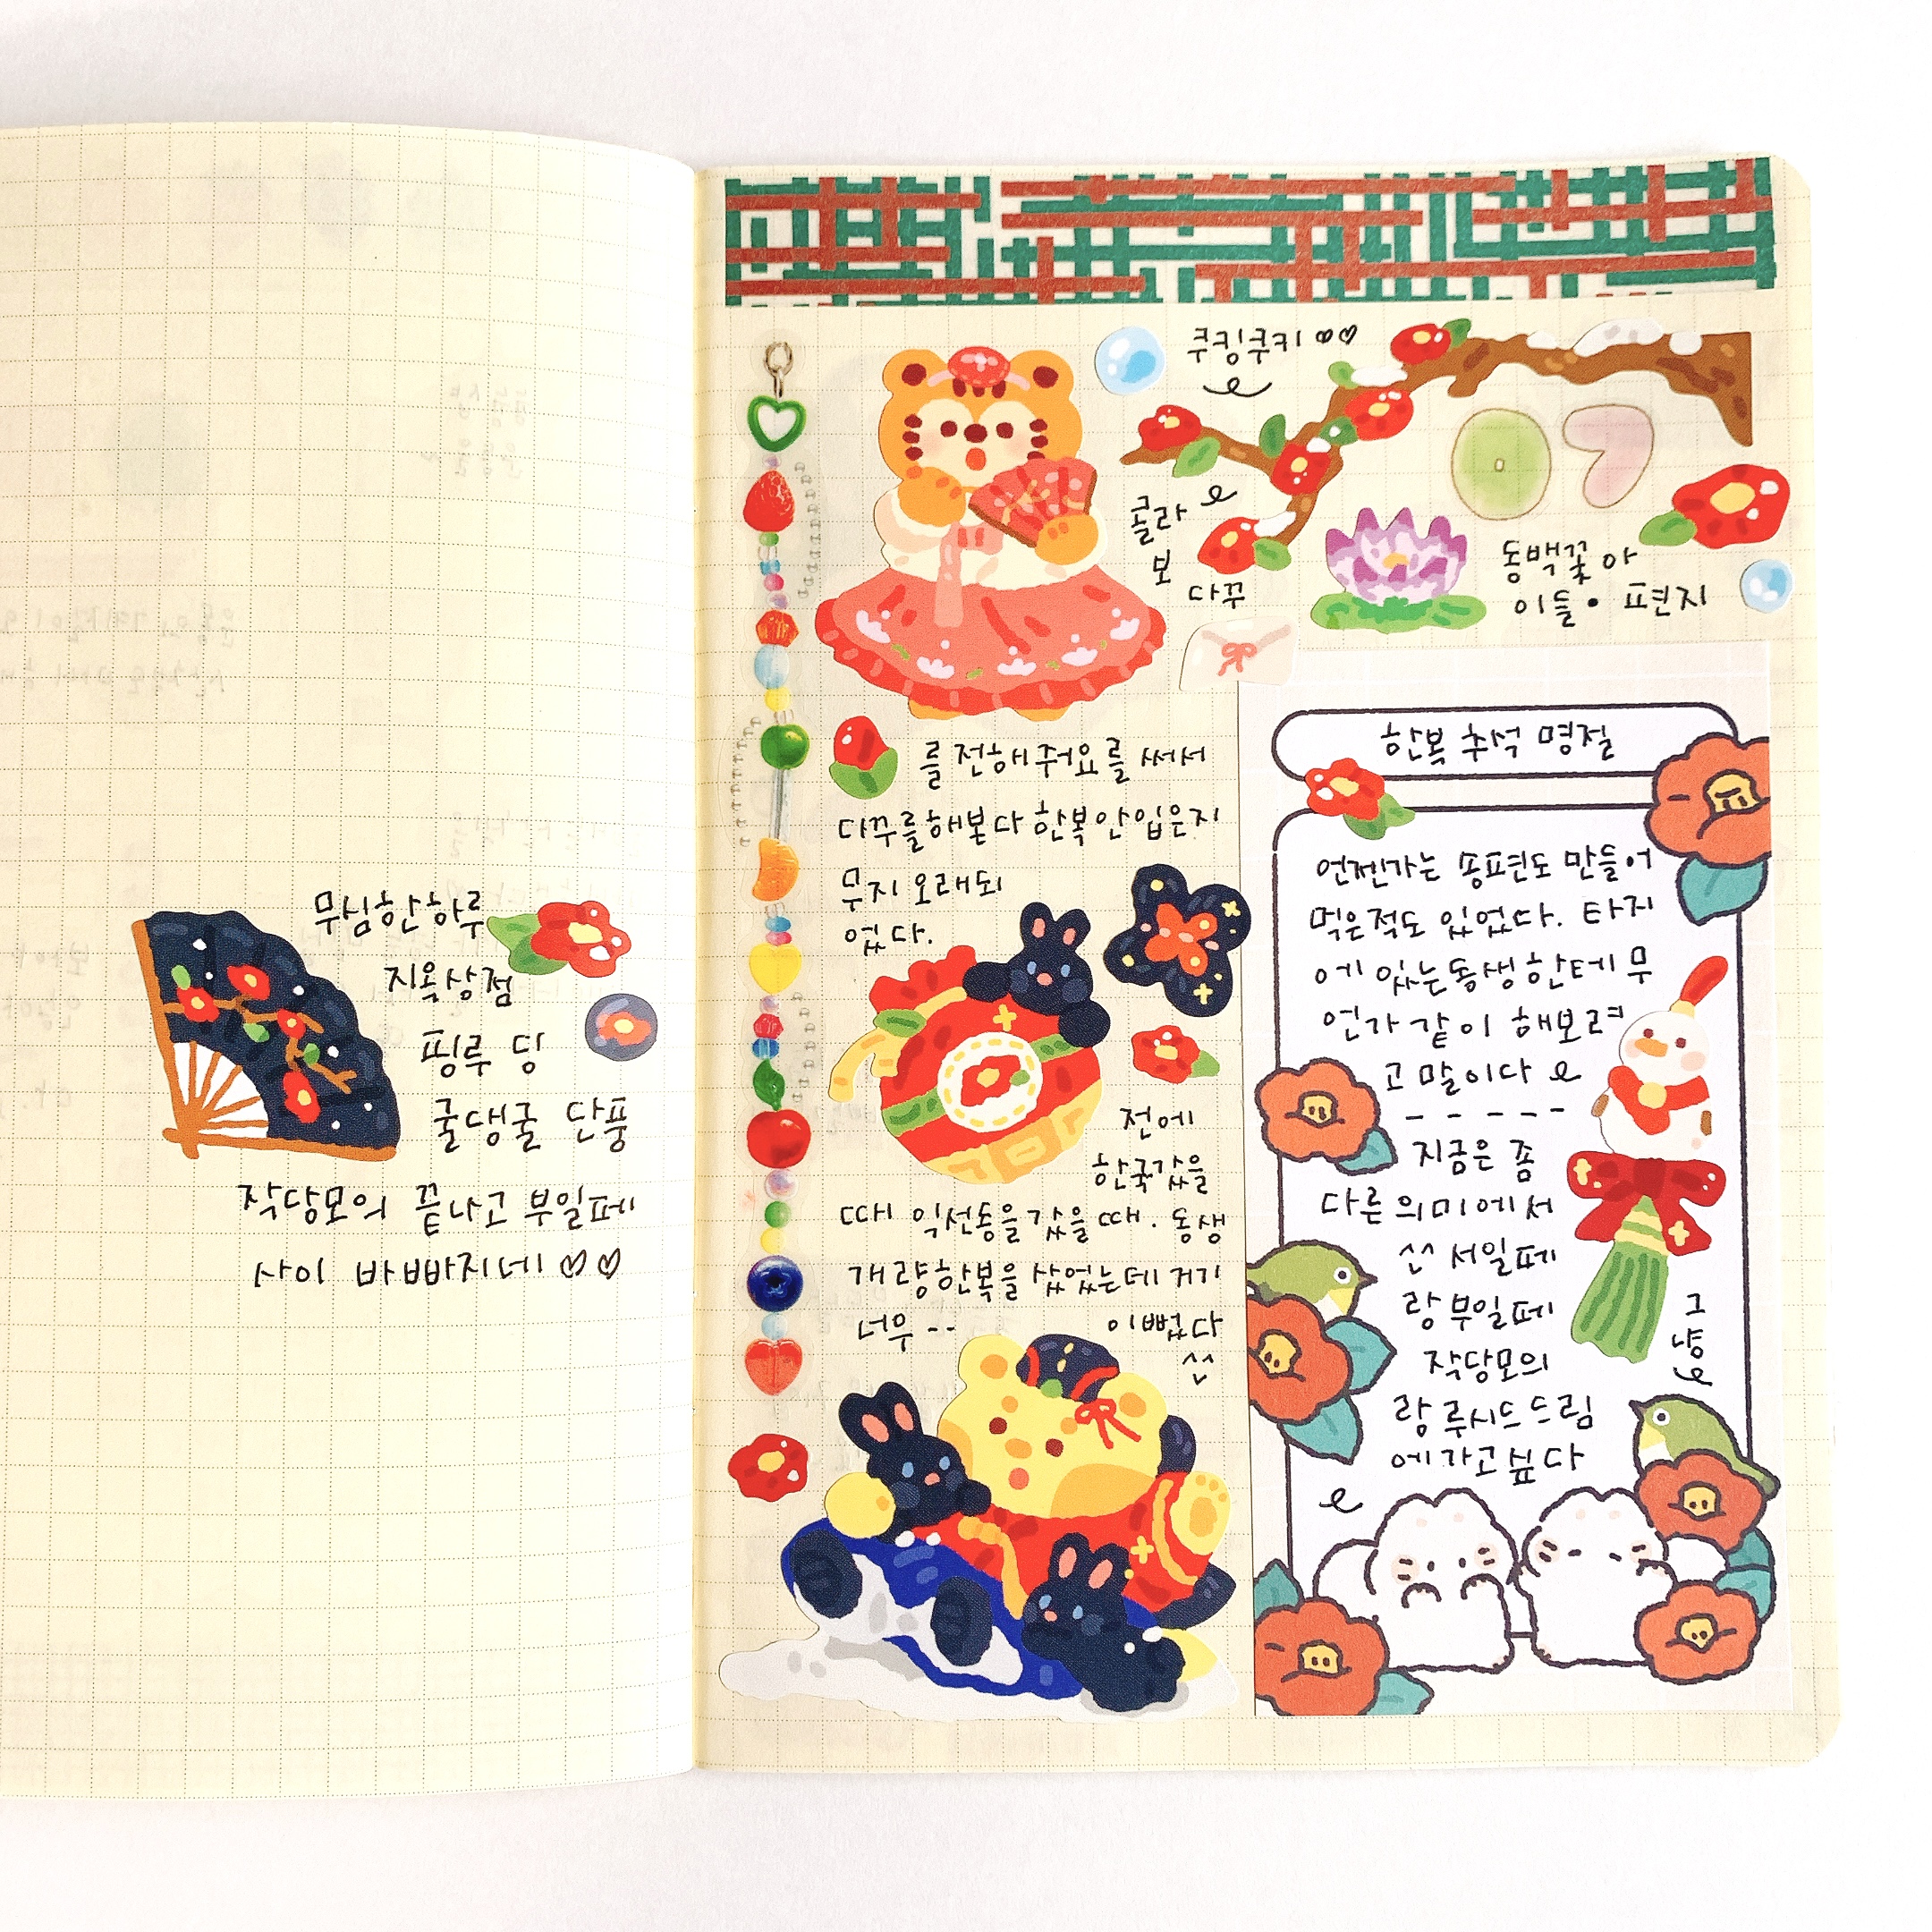 무심한하루
지옥상점
핑루 당
굴댕굴 단풍
작당모의 끝나고 부일페
사이 바빠지네♡♡
쿠킹쿠키♡♡
콜라
보
다꾸
07
동백꽃 아
이들 • 편지
를 전해주어요를 써서
다꾸를해본다 한복안입은지
무지 오래되
었다.
전에
한국갔을
때 익선동을갔을때. 동생
개량한복을 샀었는데 거기
너우--
이뻤다
^^
한복 추석 명절
언젠가는 송편도 만들어
먹은적도 있었다. 타지
에 있는동생한테 무
언가 같이 해보려
고 말이다
지금은 좀
다른의미에서
^^ 서일페
랑 부일페
작당모의
랑 루시드드림
에가고싶다
그
냥